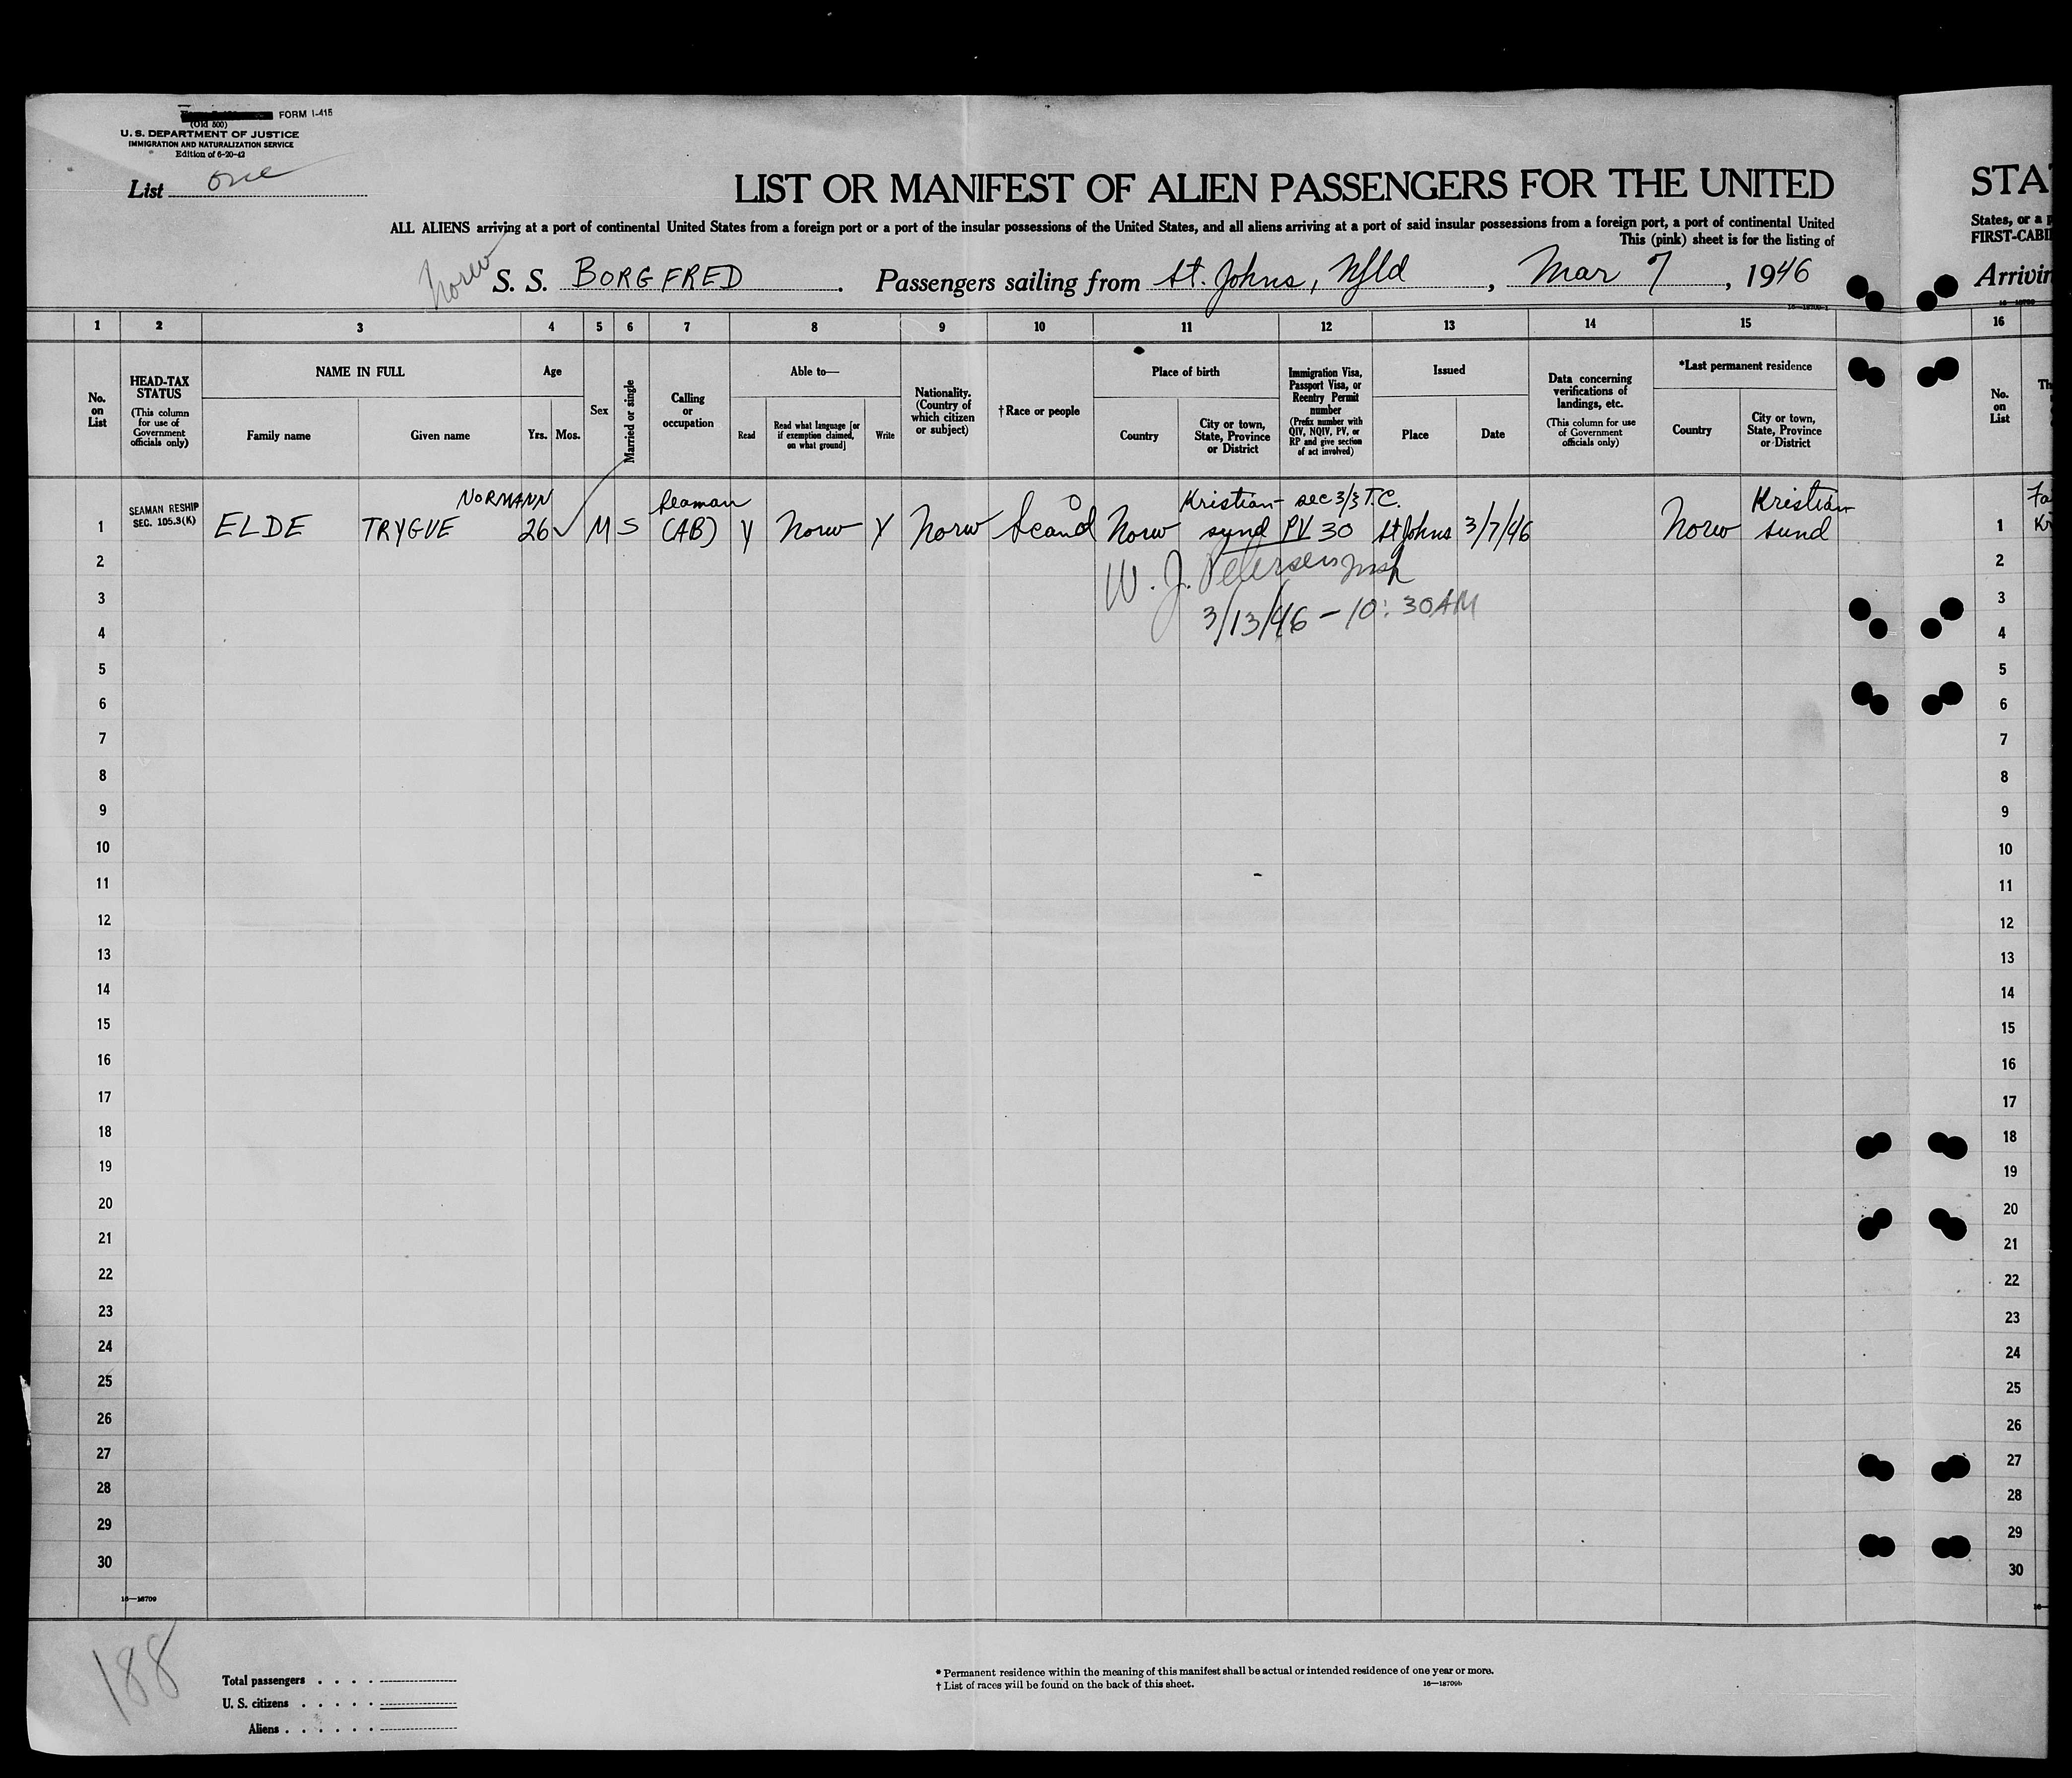 (Old 500) FORM I-415
U. S. DEPARTMENT OF JUSTICE
IMMIGRATION AND NATURALIZATION SERVICE
Edition of 6-20-42
List one
LIST OR MANIFEST OF ALIEN PASSENGERS FOR THE UNITED
STA
ALL ALIENS arriving at a port of continental United States from a foreign port or a port of the insular possessions of the United States, and all aliens arriving at a port of said insular possessions from a foreign port, a port of continental United
States, or a p
This (pink) sheet is for the listing of
FIRST-CABI
Norw S. S. BORGFRED . Passengers sailing from St. Johns, Nfld , Mar 7 , 1946
Arrivin
1 2 3 4 5 6 7 8 9 10 11 12 13 14 15 16
No. on List
HEAD-TAX STATUS
(This column for use of Government officials only)
NAME IN FULL
Family name
Given name
Age
Yrs. Mos.
Sex
Married or single
Calling or occupation
Able to—
Read
Read what language [or if exemption claimed, on what ground]
Write
Nationality. (Country of which citizen or subject)
†Race or people
Place of birth
Country
City or town, State, Province or District
Immigration Visa, Passport Visa, or Reentry Permit number
(Prefix number with QIV, NQIV, PV, or RP and give section of act involved)
Issued
Place
Date
Data concerning verifications of landings, etc.
(This column for use of Government officials only)
*Last permanent residence
Country
City or town, State, Province or District
No. on List
Th
NORMANN Seaman Kristian- sec 3/3 T.C. Kristian
SEAMAN RESHIP
SEC. 105.3(K)
1 ELDE TRYGVE 26 M S (AB) Y Norw Y Norw Scand Norw sund PV 30 St Johns 3/7/46 Norw sund 1
2 W. J. Petersen Insp 2
3 3/13/46 - 10:30AM 3
4 4
5 5
6 6
7 7
8 8
9 9
10 10
11 11
12 12
13 13
14 14
15 15
16 16
17 17
18 18
19 19
20 20
21 21
22 22
23 23
24 24
25 25
26 26
27 27
28 28
29 29
30 30
16—18709
188
Total passengers . . . .
U. S. citizens . . . . .
Aliens . . . . . .
* Permanent residence within the meaning of this manifest shall be actual or intended residence of one year or more.
† List of races will be found on the back of this sheet. 16—18709b